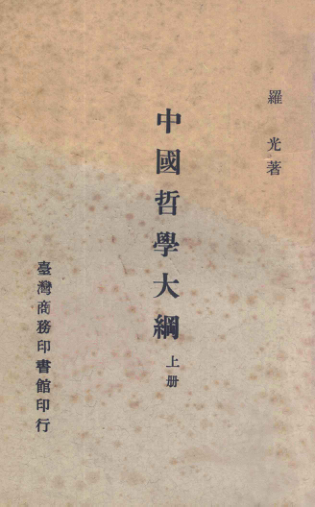 羅光著
中國哲學大綱
上册
臺灣商務印書館印行